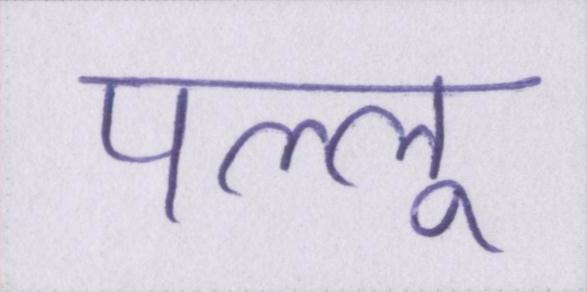 पल्लू